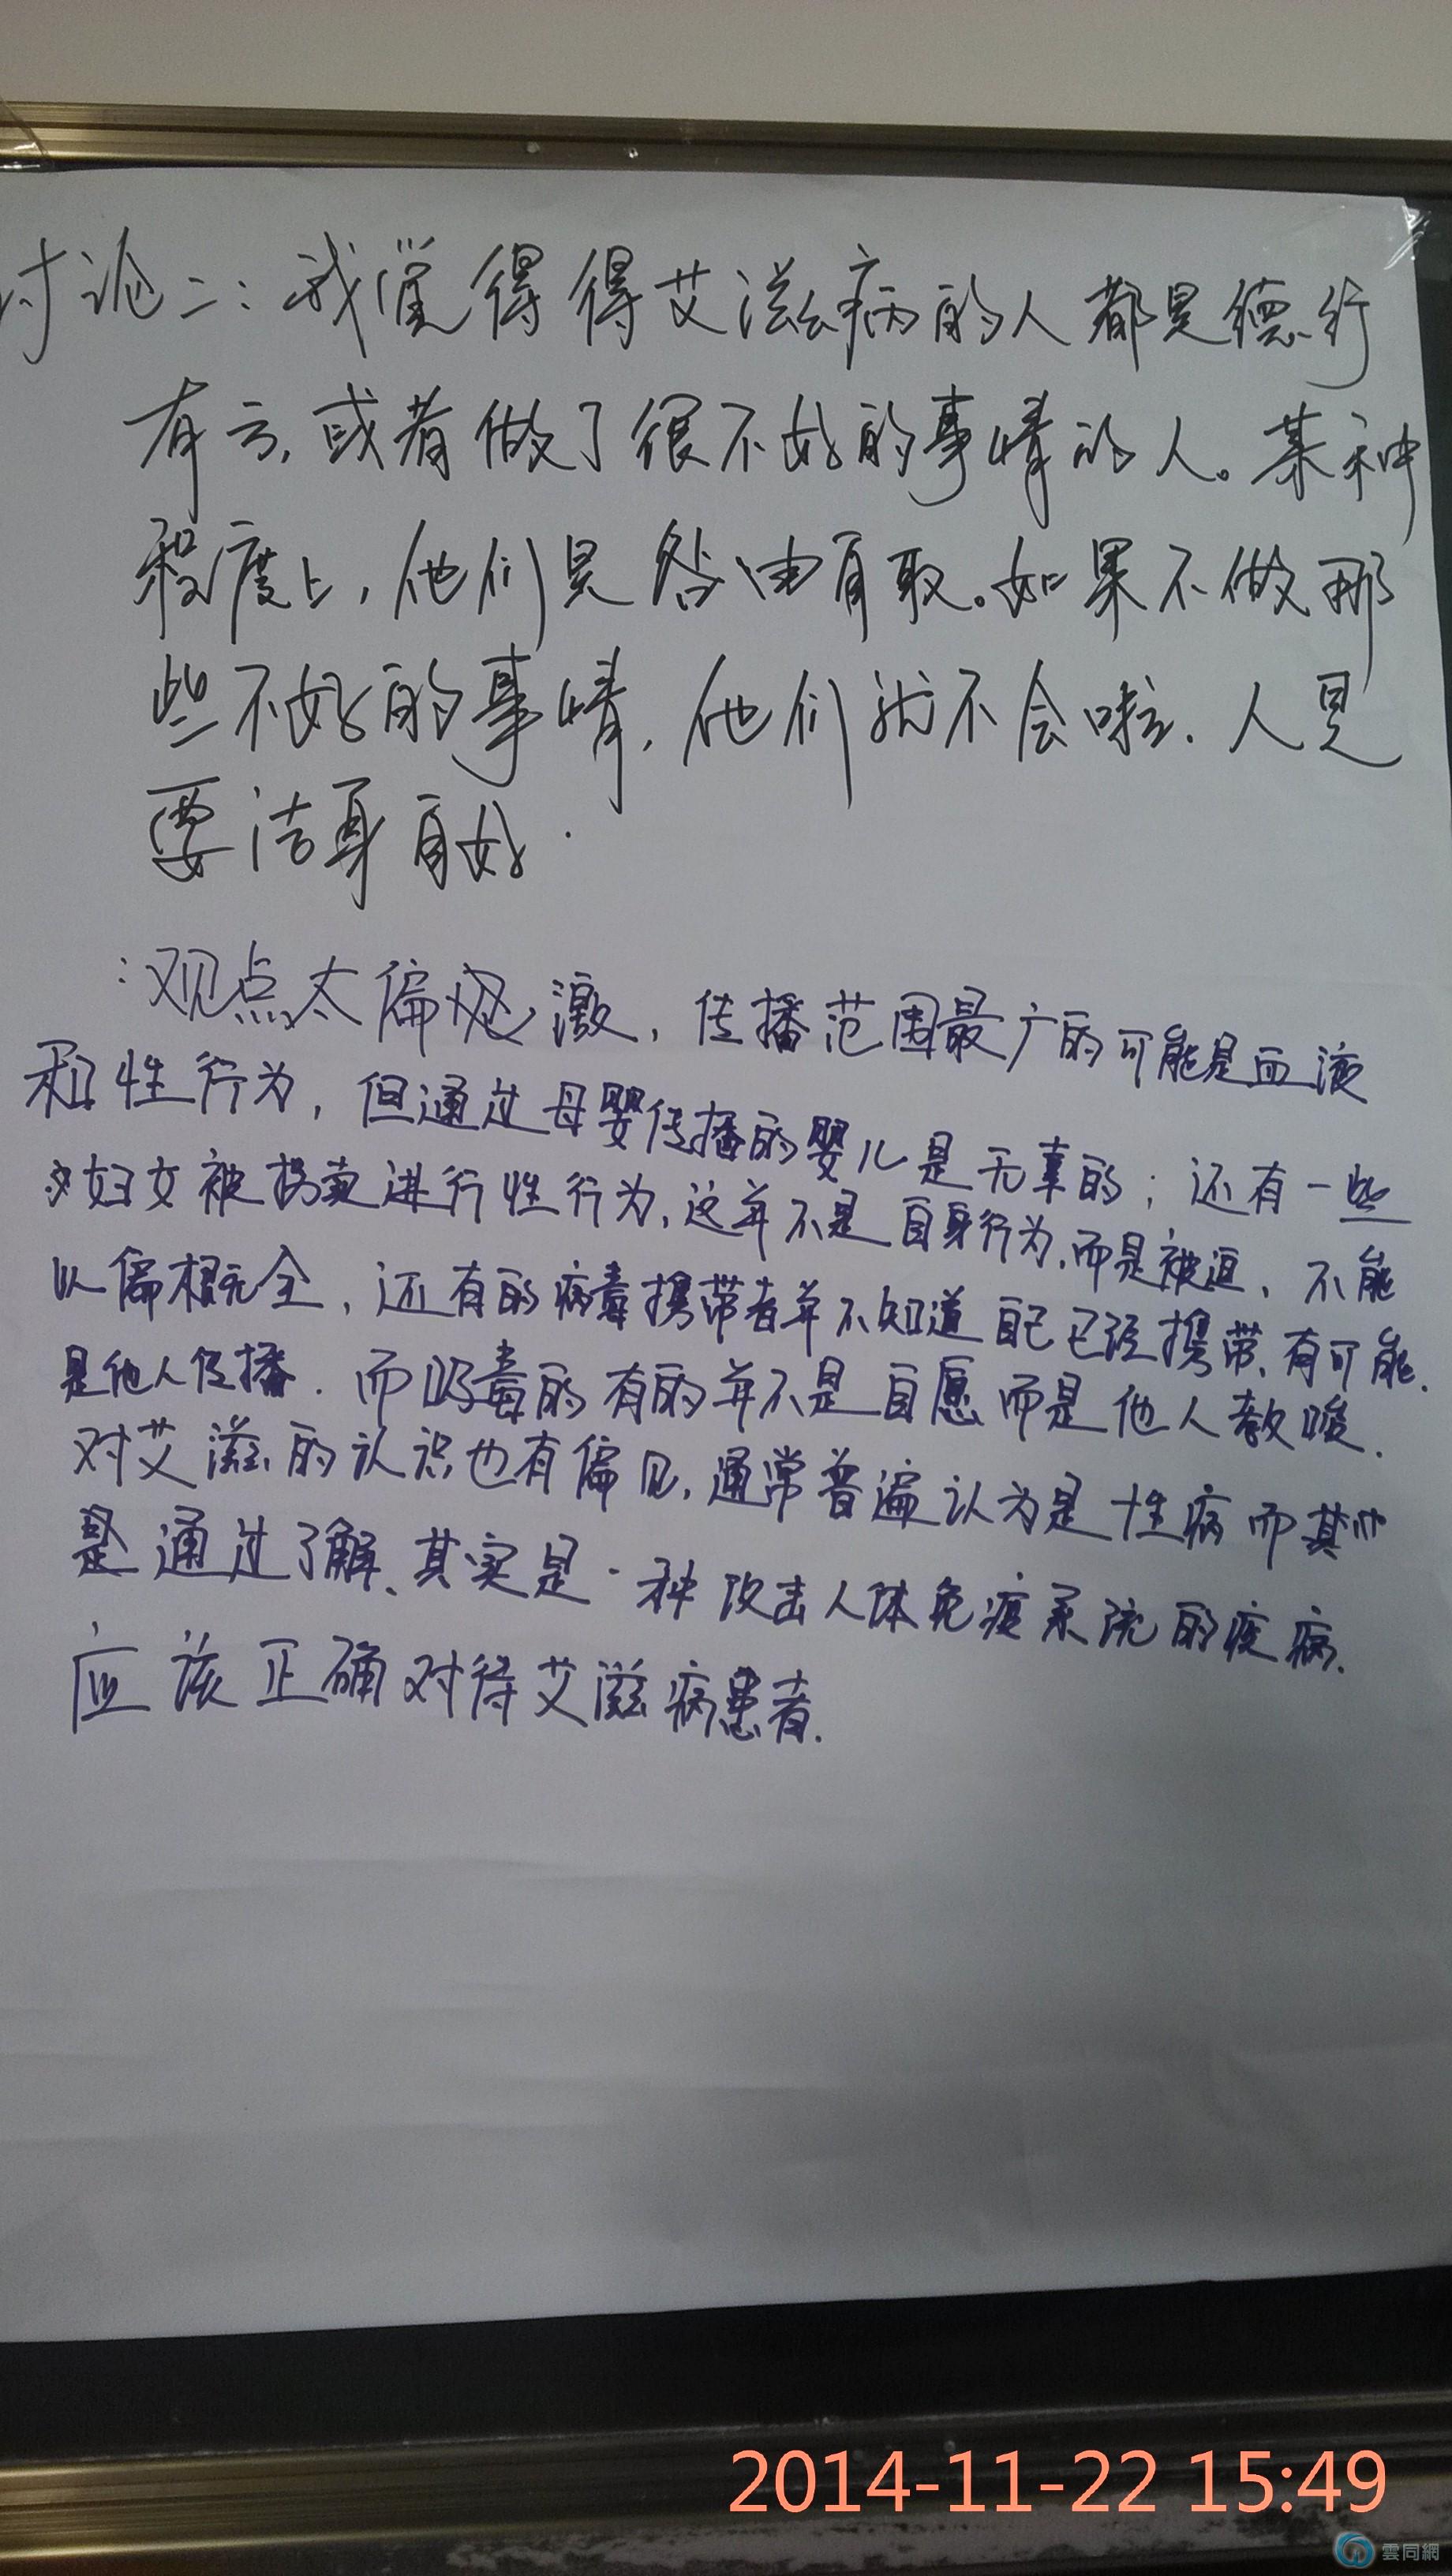 讨论二：我觉得得艾滋病的人都是德行
有亏，或者做了很不好的事情的人。某种
程度上，他们是咎由自取。如果不做那
些不好的事情，他们就不会啦．人是
要洁身自好．
：观点太偏激，传播范围最广的可能是血液
和性行为，但通过母婴传播的婴儿是无辜的；还有一些
妇女被拐卖进行性行为，这并不是自身行为，而是被迫、不能
以偏概全，还有的病毒携带者并不知道自己已经携带、有可能
是他人传播．而吸毒的有的并不是自愿而是他人教唆．
对艾滋的认识也有偏见，通常普遍认为是性病而其
是通过了解、其实是一种攻击人体免疫系统的疾病．
应该正确对待艾滋病患者．
2014-11-22 15:49
雲同網